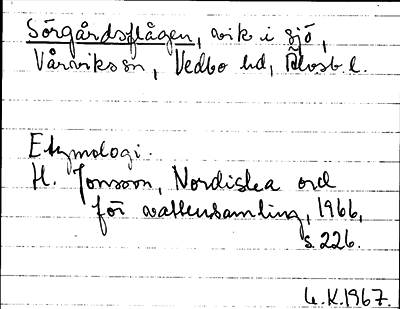 Sörgårdsflågen, vik i sjö,
Vårviks sn, Vedbo hd, Älvsb. l.
Etymologi.
H. Jonsson, Nordiska ord
för vattensamling, 1966,
s. 226.
K. 1967.